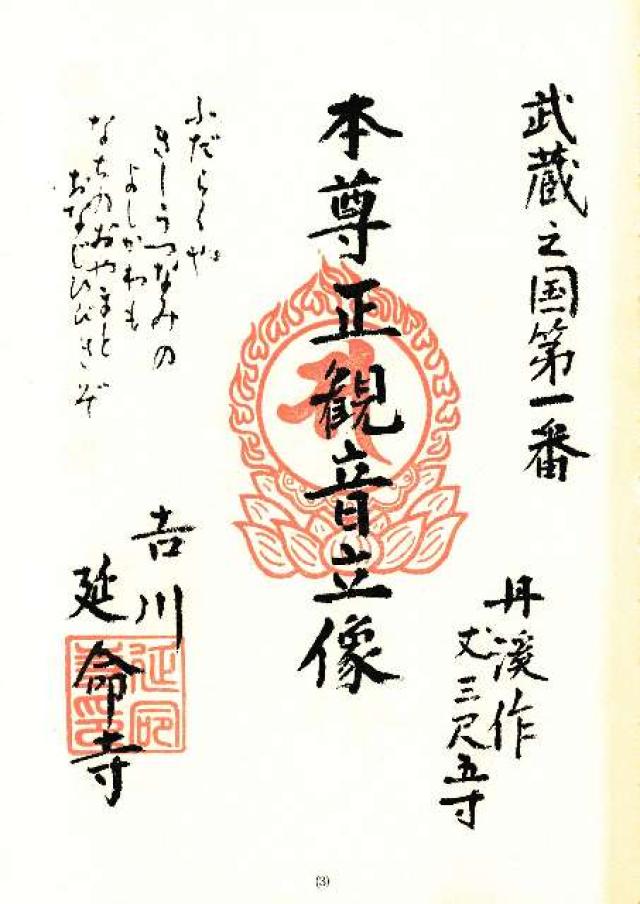 武蔵之国第一番
丹溪作
丈三尺五寸
本尊正観音立像
ふだらくや
きしうつなみの
よしかわも
なちのおやまと
おなじひびきぞ
吉川
延命寺
(3)